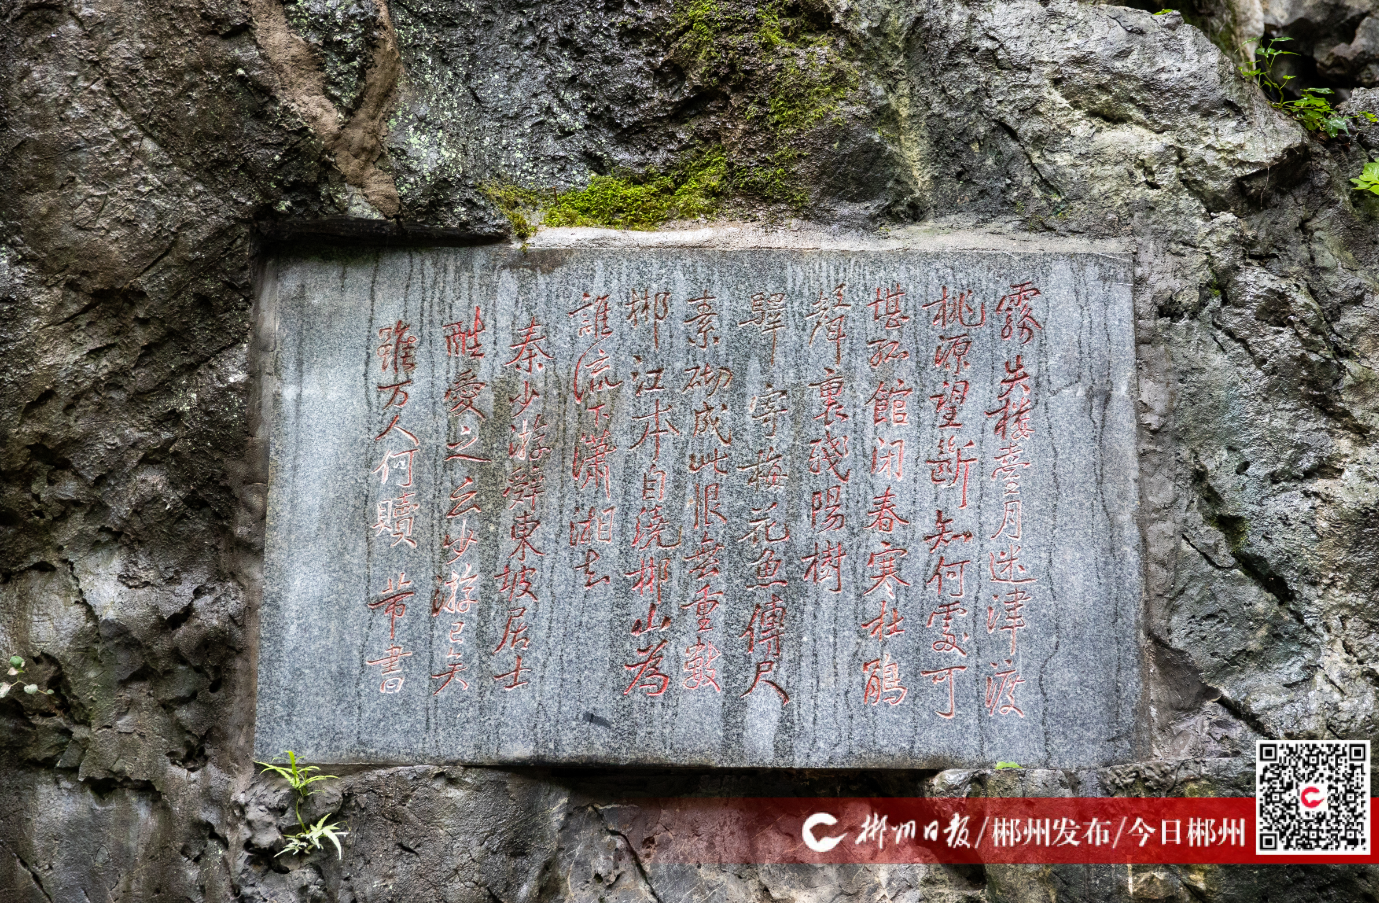 霧失樓臺月迷津渡
桃源望斷知何處可
堪孤館閉春寒杜鵑
聲裏殘陽樹
驛寄梅花魚傳尺
素砌成此恨無重數
郴江本自繞郴山為
誰流下瀟湘去
秦少游辭東坡居士
酷愛之云少游已矣
雖万人何贖 芾書
郴州日报/郴州发布/今日郴州